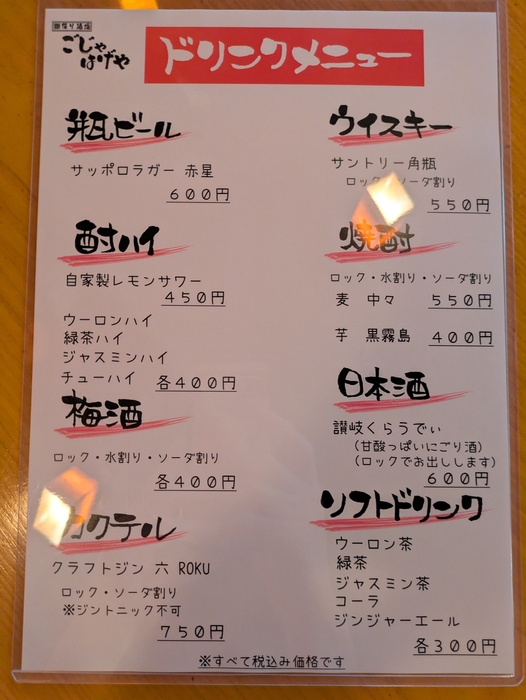 ごじゃ
はげや
ドリンクメニュー
瓶ビール
サッポロラガー 赤星
600円
酎ハイ
自家製レモンサワー
450円
ウーロンハイ
緑茶ハイ
ジャスミンハイ
チューハイ 各400円
梅酒
ロック・水割り・ソーダ割り
各400円
カクテル
クラフトジン 六 ROKU
ロック・ソーダ割り
※ジントニック不可
750円
ウイスキー
サントリー角瓶
ロック・ソーダ割り
550円
焼酎
ロック・水割り・ソーダ割り
麦 中々 550円
芋 黒霧島 400円
日本酒
讃岐くらうでぃ
(甘酸っぱいにごり酒)
(ロックでお出しします)
600円
ソフトドリンク
ウーロン茶
緑茶
ジャスミン茶
コーラ
ジンジャーエール
各300円
※すべて税込み価格です